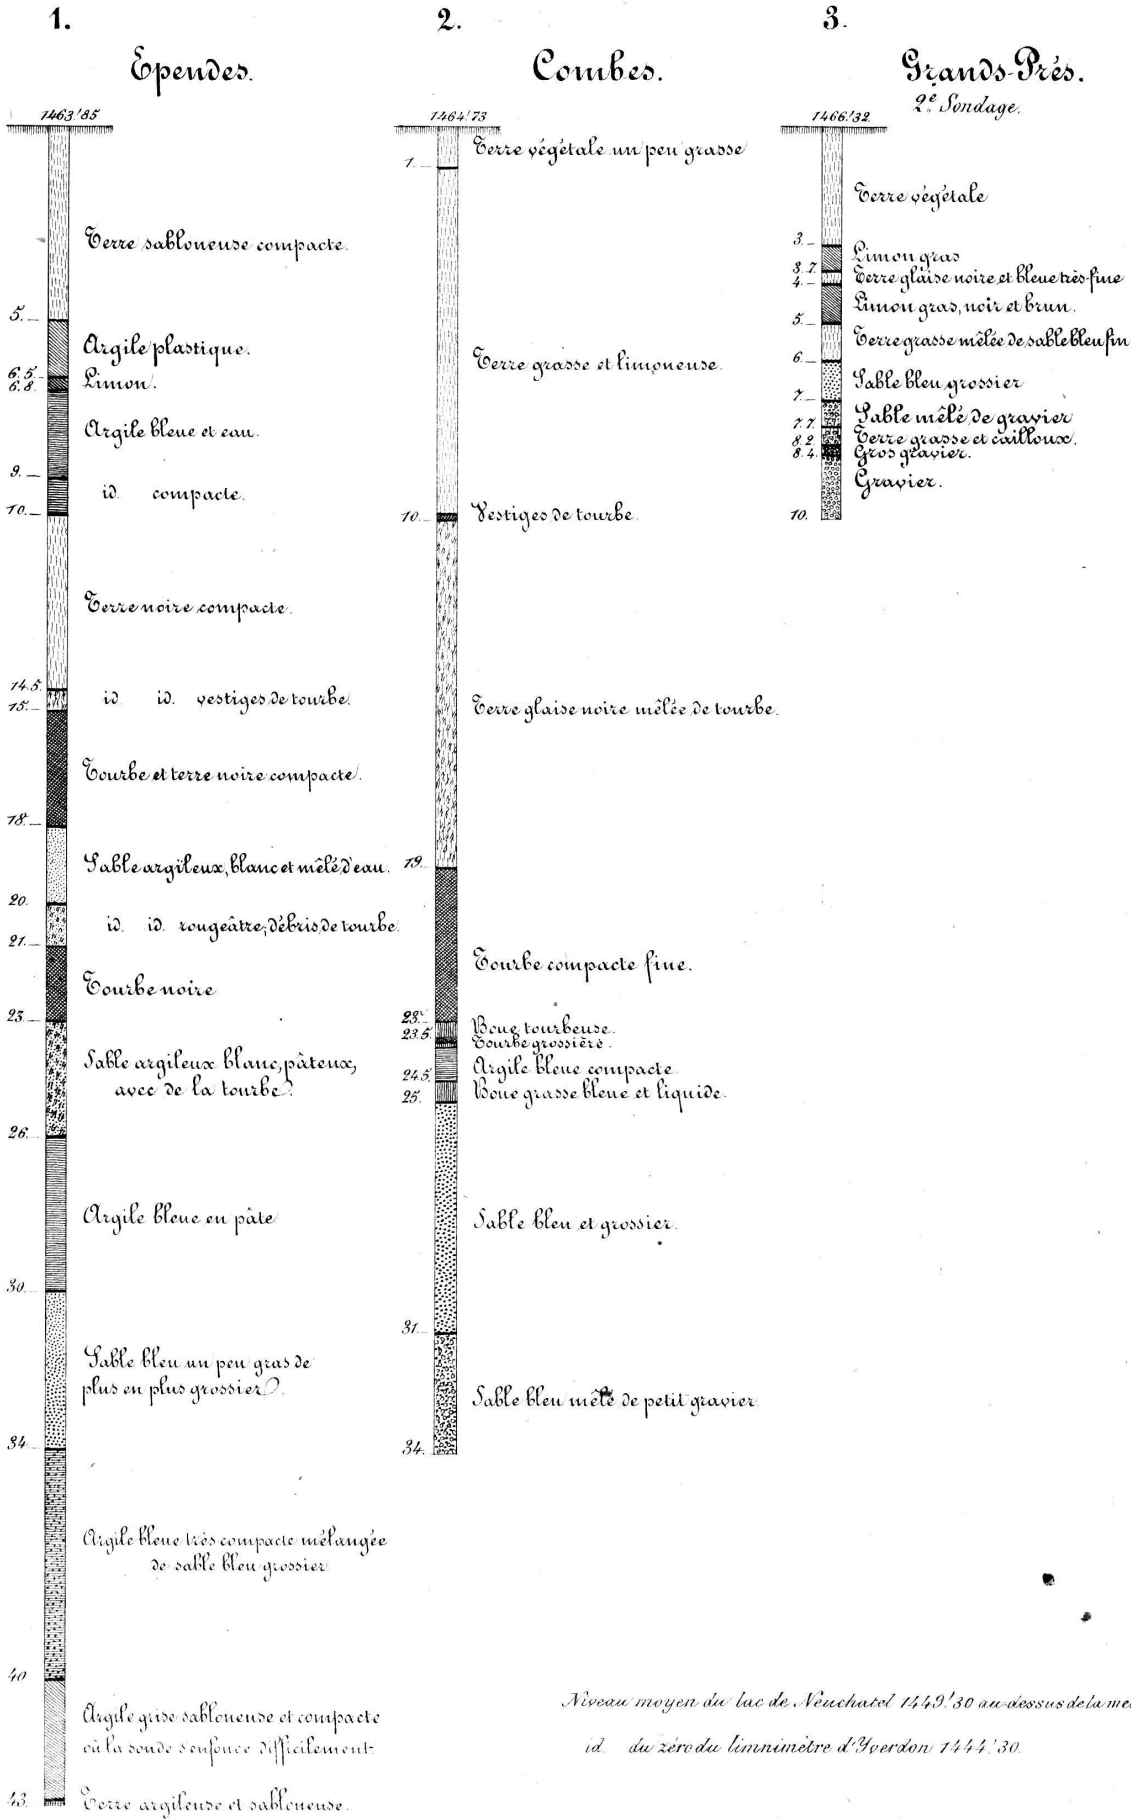 1.
Ependes.
1463.'85
Terre sabloneuse compacte.
5.
Argile plastique.
6.5.
Limon.
6.8.
Argile bleue et eau.
9.
id. compacte.
10.
Terre noire compacte.
14.5.
id id. vestiges de tourbe.
15.
Tourbe et terre noire compacte.
18.
Sable argileux, blanc et mêlé d'eau.
20.
id. id. rougeâtre, débris de tourbe.
21.
Tourbe noire
23.
Sable argileux blanc, pâteux,
avec de la tourbe.
26.
Argile bleue en pâte
30.
Sable bleu un peu gras de
plus en plus grossier.
34.
Argile bleue très compacte mélangée
de sable bleu grossier
40
Argile grise sabloneuse et compacte
où la sonde s'enfonce difficilement.
43.
Terre argileuse et sabloneuse.
2.
Combes.
1464.'73
Terre végétale un peu grasse
1.
Terre grasse et limoneuse.
10.
Vestiges de tourbe.
Terre glaise noire mêlée de tourbe.
19.
Tourbe compacte fine.
23.
Boue tourbeuse.
23.5.
Tourbe grossière.
Argile bleue compacte
24.5.
Boue grasse bleue et liquide.
25.
Sable bleu et grossier.
31.
Sable bleu mêlé de petit gravier
34.
3.
Grands-Prés.
2e Sondage.
1466.'32
Terre végétale
3.
Limon gras
3.7.
Terre glaise noire et bleue très-fine
4.
Limon gras, noir et brun.
5.
Terre grasse mêlée de sable bleu fin
6.
Sable bleu grossier
7.
Sable mêlé de gravier
7.7.
Terre grasse et cailloux.
8.2.
Gros gravier.
8.4.
Gravier.
10.
Niveau moyen du lac de Neuchatel 1449.'30 au-dessus de la me
id. du zéro du limnimètre d'Yverdon 1444.'30.